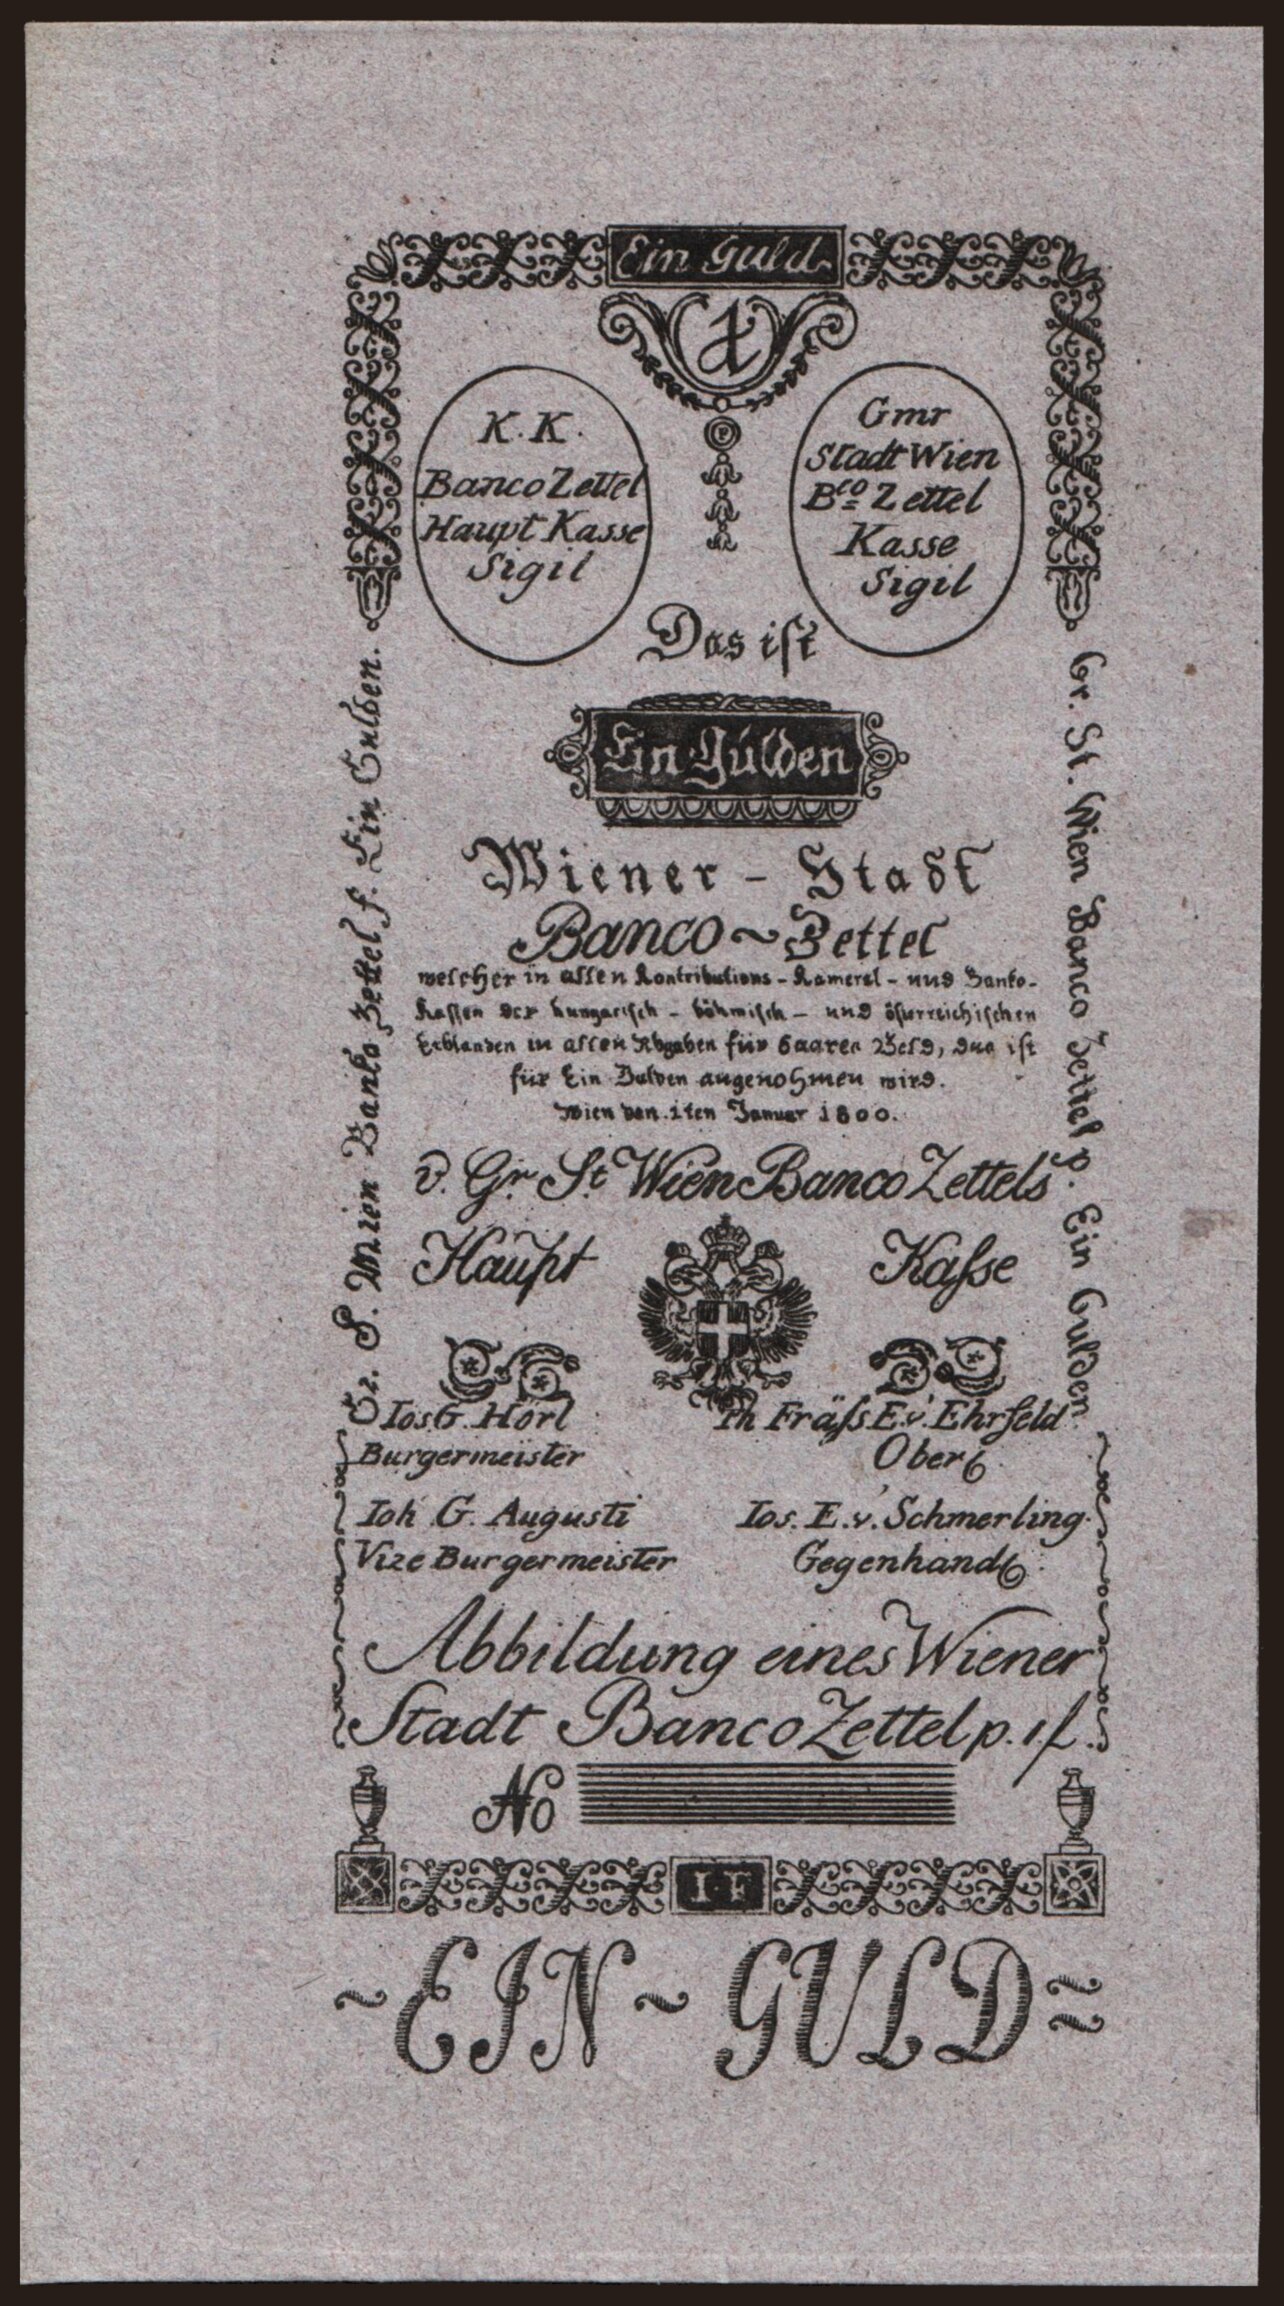 Ein Guld.
1
K. K.
Banco Zettel
Haupt Kasse
Sigil
P
Gmr
Stadt Wien
Bco Zettel
Kasse
Sigil
Das ist
Ein Gulden
Wiener - Stadt
Banco ~ Zettel
welcher in allen Kontributions - Kameral - und Banko-
Kassen der hungarisch - böhmisch - und österreichischen
Erblanden in allen Abgaben für baares Geld, das ist
für Ein Gulden angenohmen wird.
Wien den 1ten Januar 1800.
v. Gr. St. Wien Banco Zettels
Haupt Kasse
Gr. S. Wien Banko Zettel f. Ein Gulden.
Gr. St. Wien Banco Zettel p. Ein Gulden
Ios. G. Hörl
Burgermeister
Ph Fräss E.v. Ehrfeld
Ober
Ioh G. Augusti
Vize Burgermeister
Ios. E. v. Schmerling
Gegenhand
Abbildung eines Wiener
Stadt Banco Zettel p. 1 f.
No
I F
~ EIN ~ GULD =